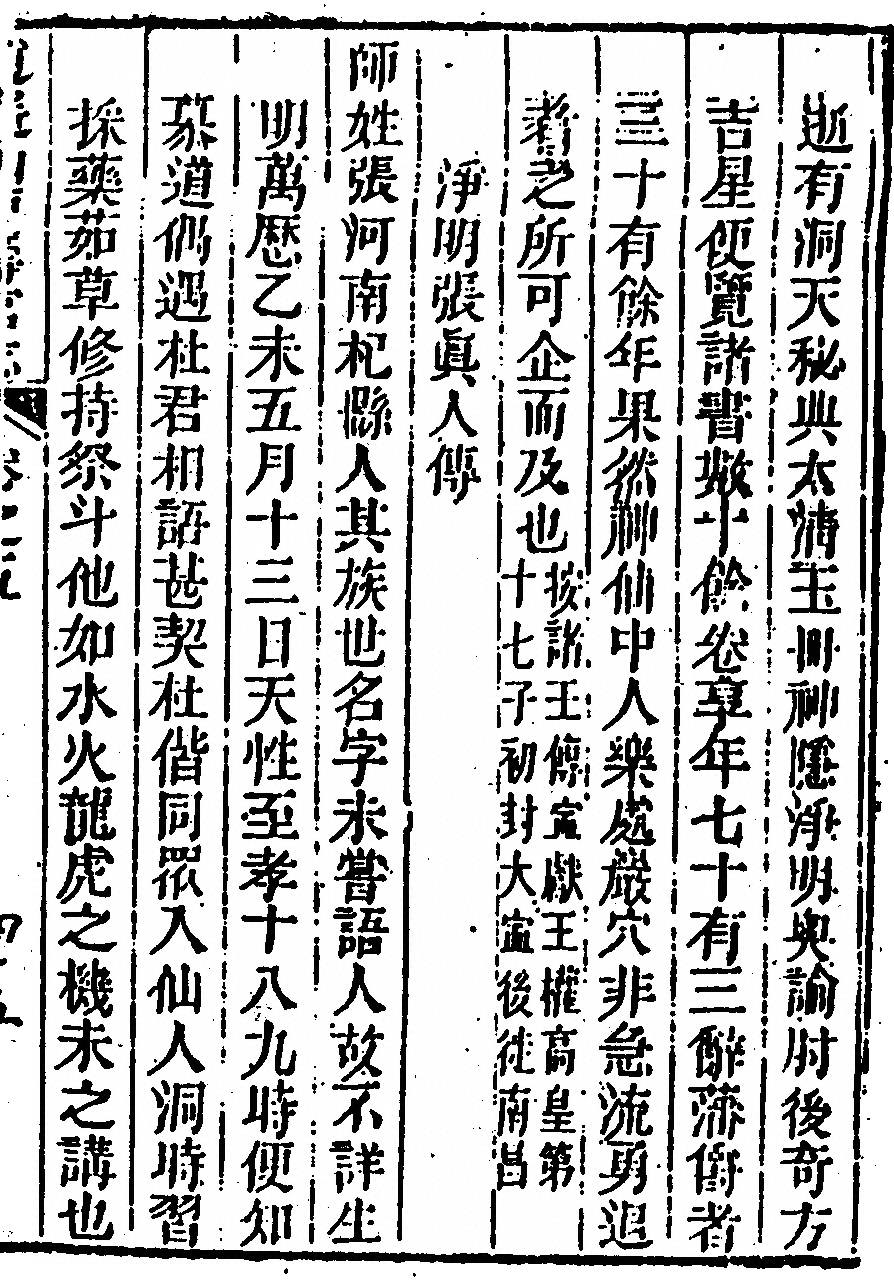 逝有洞天秘典太清玉冊神隱淨明奧論肘後奇方
吉星便覽諸書數十餘卷享年七十有三辭藩爵者
三十有餘年果然神仙中人樂處巖穴非急流勇退
者之所可企而及也按諸王傳甯獻王權高皇第
十七子初封大甯後徙南昌
淨明張眞人傳
師姓張河南杞縣人其族世名字未嘗語人故不詳生
明萬歷乙未五月十三日天性至孝十八九時便知
慕道偶遇杜君相語甚契杜偕同眾入仙人洞時習
採藥茹草修持祭斗他如水火龍虎之機未之講也